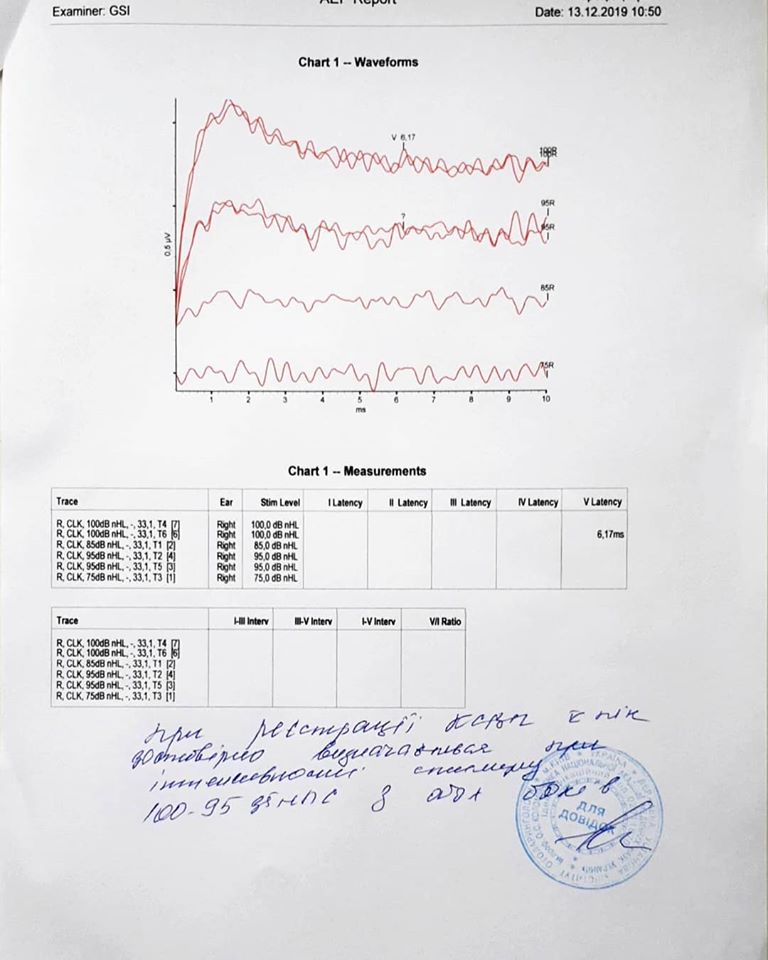 AEP Report
Examiner: GSI
Date: 13.12.2019 10:50
Chart 1 -- Waveforms
V 6,17
100R
95R
?
95R
85R
75R
0.5 µV
1 2 3 4 5 6 7 8 9 10
ms
Chart 1 -- Measurements
Trace Ear Stim Level I Latency II Latency III Latency IV Latency V Latency
R, CLK, 100dB nHL, -, 33,1, T4 [7] Right 100,0 dB nHL
R, CLK, 100dB nHL, -, 33,1, T6 [6] Right 100,0 dB nHL 6,17ms
R, CLK, 85dB nHL, -, 33,1, T1 [2] Right 85,0 dB nHL
R, CLK, 95dB nHL, -, 33,1, T2 [4] Right 95,0 dB nHL
R, CLK, 95dB nHL, -, 33,1, T5 [3] Right 95,0 dB nHL
R, CLK, 75dB nHL, -, 33,1, T3 [1] Right 75,0 dB nHL
Trace I-III Interv III-V Interv I-V Interv V/I Ratio
R, CLK, 100dB nHL, -, 33,1, T4 [7]
R, CLK, 100dB nHL, -, 33,1, T6 [6]
R, CLK, 85dB nHL, -, 33,1, T1 [2]
R, CLK, 95dB nHL, -, 33,1, T2 [4]
R, CLK, 95dB nHL, -, 33,1, T5 [3]
R, CLK, 75dB nHL, -, 33,1, T3 [1]
при реєстрації КСВП пік
достовірно визначався при
інтенсивності стимулу
100-95 дБ нПС з обох боків
ДЛЯ
ДОВІДОК